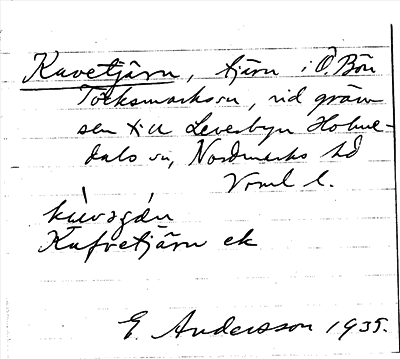 Kavetjärn, tjärn i Ö. Bön
Töcksmarks sn, vid grän-
sen till Leverbyn Holme-
dals sn, Nordmarks hd
Vrml l.
Kafvetjärn ek
E. Andersson 1935.